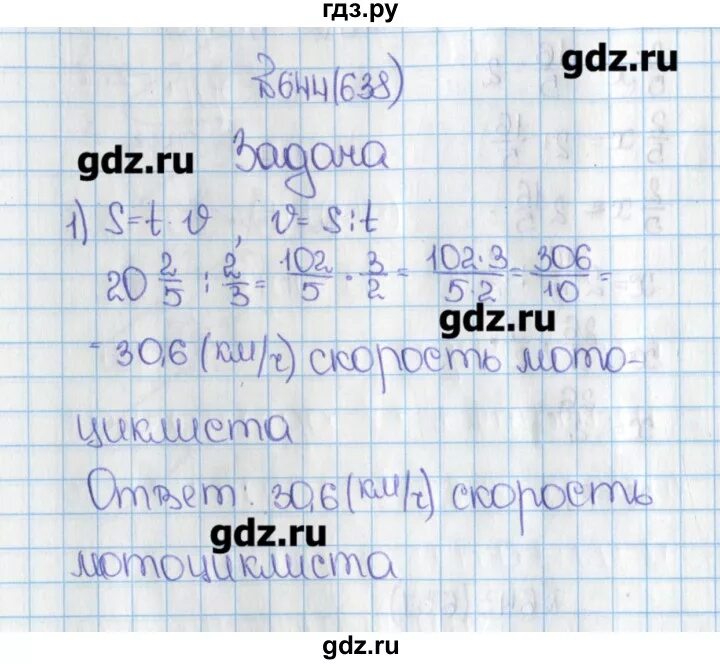 гдз.ру
gdz.ru
№644(638)
gdz.ru
Задача
1) S=t·v, v=S:t
20 2/5 : 2/3 = 102/5 · 3/2 = 102·3/5·2 = 306/10 =
gdz.ru
= 30,6 (км/ч) скорость мото-
циклиста
Ответ: 30,6 (км/ч) скорость
gdz.ru
мотоциклиста
gdz.ru